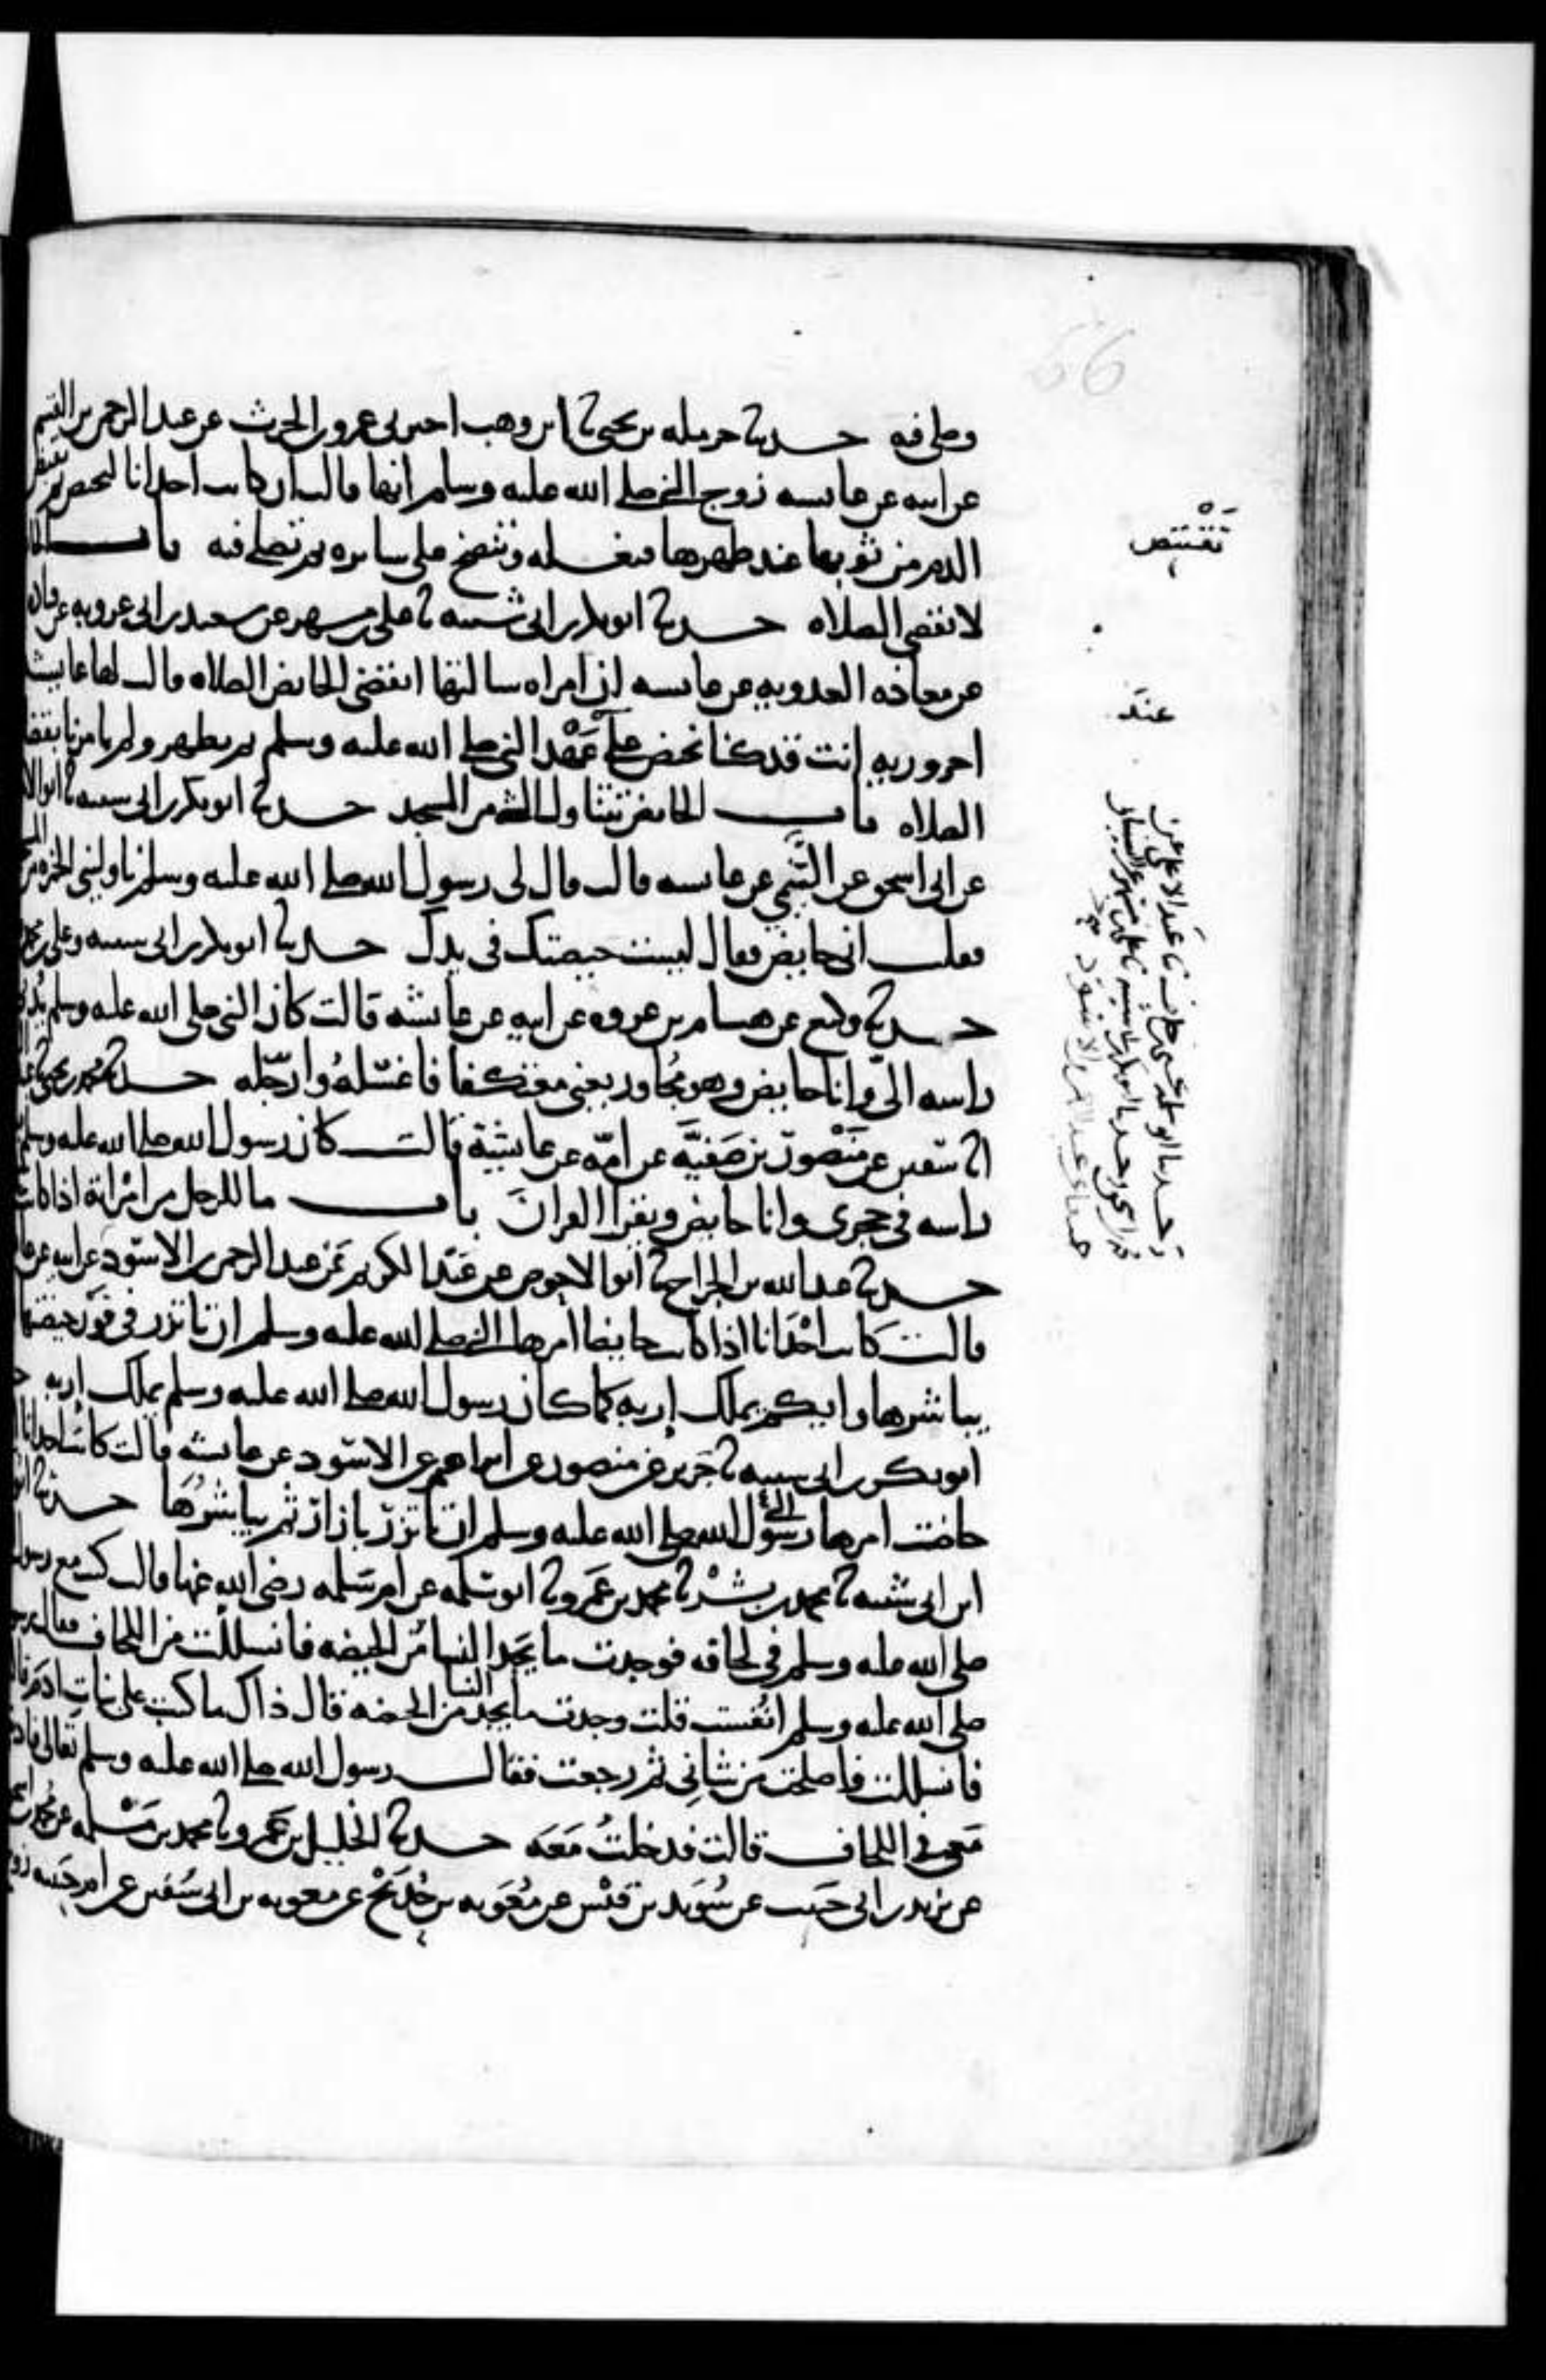 وصلى فيه حدثنا حرمله بن يحيى ثنا ابن وهب اخبرني عمرو بن الحرث عن عبد الرحمن بن القسم
عن ابيه عن عائشه زوج النبي صلى الله عليه وسلم انها قالت ان كانت احدانا لتحيض ثم
الدم من ثوبها عند طهرها فتغسله وتنضح على سايره ثم تصلي فيه باب
لا تقضي الصلاه حدثنا ابو بكر بن ابي شيبه ثنا علي بن مسهر عن سعيد بن ابي عروبه عن
عن معاذه العدويه عن عائشه ان امراه سالتها اتقضي الحائض الصلاه قالت لها
احروريه انت قد كنا نحيض على عهد النبي صلى الله عليه وسلم ثم نطهر ولم يامرنا بقضا
الصلاه باب الحائض تتناول الشي من المسجد حدثنا ابو بكر بن ابي شيبه ثنا
عن ابي اسحق عن البهي عن عائشه قالت قال لي رسول الله صلى الله عليه وسلم ناوليني الخمره من
فقلت اني حايض فقال ليست حيضتك في يدك حدثنا ابو بكر بن ابي شيبه وعلي بن محمد
حدثنا وكيع عن هشام بن عروه عن ابيه عن عائشه قالت كان النبي صلى الله عليه وسلم
راسه الىّ وانا حايض وهو مُجاور يعني معتكفا فاغسّلهُ وارجّله حدثنا محمد بن يحيى
انا سفين عن مَنْصور بن صَفيَّه عن امّه عن عايشة قالت كان رسول الله صلى الله عليه وسلم
راسه في حجري وانا حايض ويقرا القرانَ باب ما للرجل من امْراته اذا كانت
حدثنا عبد الله بن الجراح ثنا ابو الاحوص عن عَبْد الكريم عَن عبد الرحمن بن الاسود عن ابيه عن
قالت كانت احْدَانا اذا كانت حايضا امرها النبي صلى الله عليه وسلم ان تاتزر في فَوْر حيضتها
يباشرها وايكم يملك إربه كما كان رسول الله صلى الله عليه وسلم يملك إربه
ابو بكر بن ابي شيبه ثنا جَرير عن منصور عن ابراهيم عن الاسود عن عائشه قالت كانت احدانا
حاضت امرها رسول الله صلى الله عليه وسلم ان تاتزرّ بازارّ ثم يباشرُهَا حدثنا
ابن ابي شيبه ثنا محمد بن بِشْر ثنا محمد بن عَمرو ثنا ابو سَلمه عن ام سَلمه رضى الله عنها قالت كنت مع رسول
صلى الله عليه وسلم في لحافه فوجدت ما يَجد النسا من الحيضه فانسللت من اللحاف فقال
صلى الله عليه وسلم انُفست قلت وجدت ما يجد النسا من الحيضه قال ذاك ما كتب على بنات ادمَ
فانسللت فاصلحت من شاني ثم رجعت فقال رسول الله صلى الله عليه وسلم تعالى
مَعي في اللحاف قالت فدخلتُ مَعَه حدثنا الخليل بن عَمرو ثنا محمد بن سَلمه عن محمد بن
عن يزيد بن ابي حَبيب عن سُوَيد بن قيْس عن مُعَويه بن حُدَيْج عن معويه بن ابي سُفين عن ام حَبيبه
تَقْتَنص
عندَ